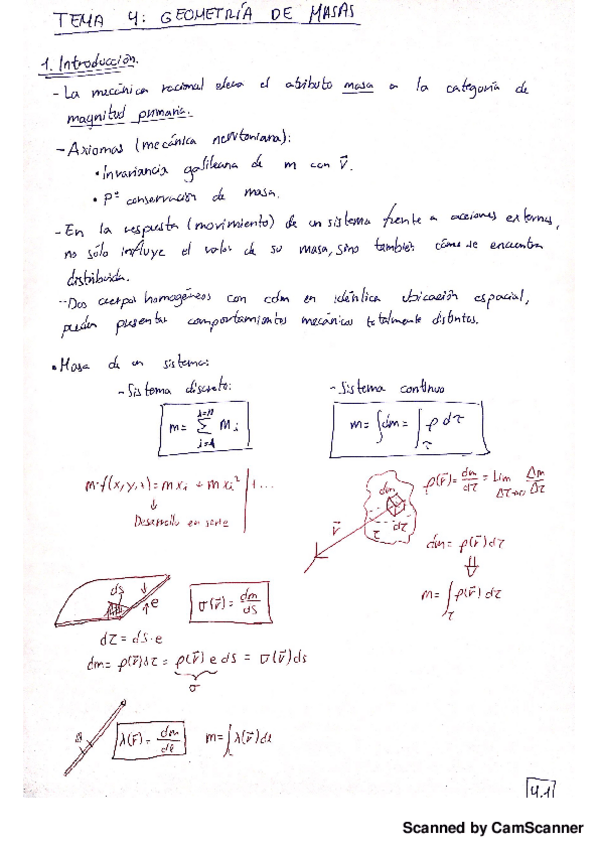 TEMA 4: GEOMETRÍA DE MASAS
1. Introducción.
- La mecánica racional eleva el atributo masa a la categoría de
magnitud primaria.
- Axiomas (mecánica newtoniana):
• Invariancia galileana de m con v⃗.
• Pº conservación de masa.
- En la respuesta (movimiento) de un sistema frente a acciones externas,
no sólo influye el valor de su masa, sino también cómo se encuentra
distribuida.
- Dos cuerpos homogéneos con cdm en idéntica ubicación espacial,
pueden presentar comportamientos mecánicos totalmente distintos.
• Masa de un sistema:
- Sistema discreto:
- Sistema continuo
m = Σ mi
m = ∫dm = ∫τ ρ dτ
m·f(x,y,z) = m xi + m xi² + ...
↓
Desarrollo en serie
dm
r⃗
τ
dτ
ρ(r⃗) = dm/dτ = Lim Δτ→0 Δm/Δτ
dm = ρ(r⃗) dτ
⇓
m = ∫τ ρ(r⃗) dτ
ds
e
σ(r⃗) = dm/ds
dτ = ds·e
dm = ρ(r⃗)dτ = ρ(r⃗) e ds = σ(r⃗) ds
σ
λ(r⃗) = dm/dl
m = ∫ λ(r⃗) dl
4.1
Scanned by CamScanner